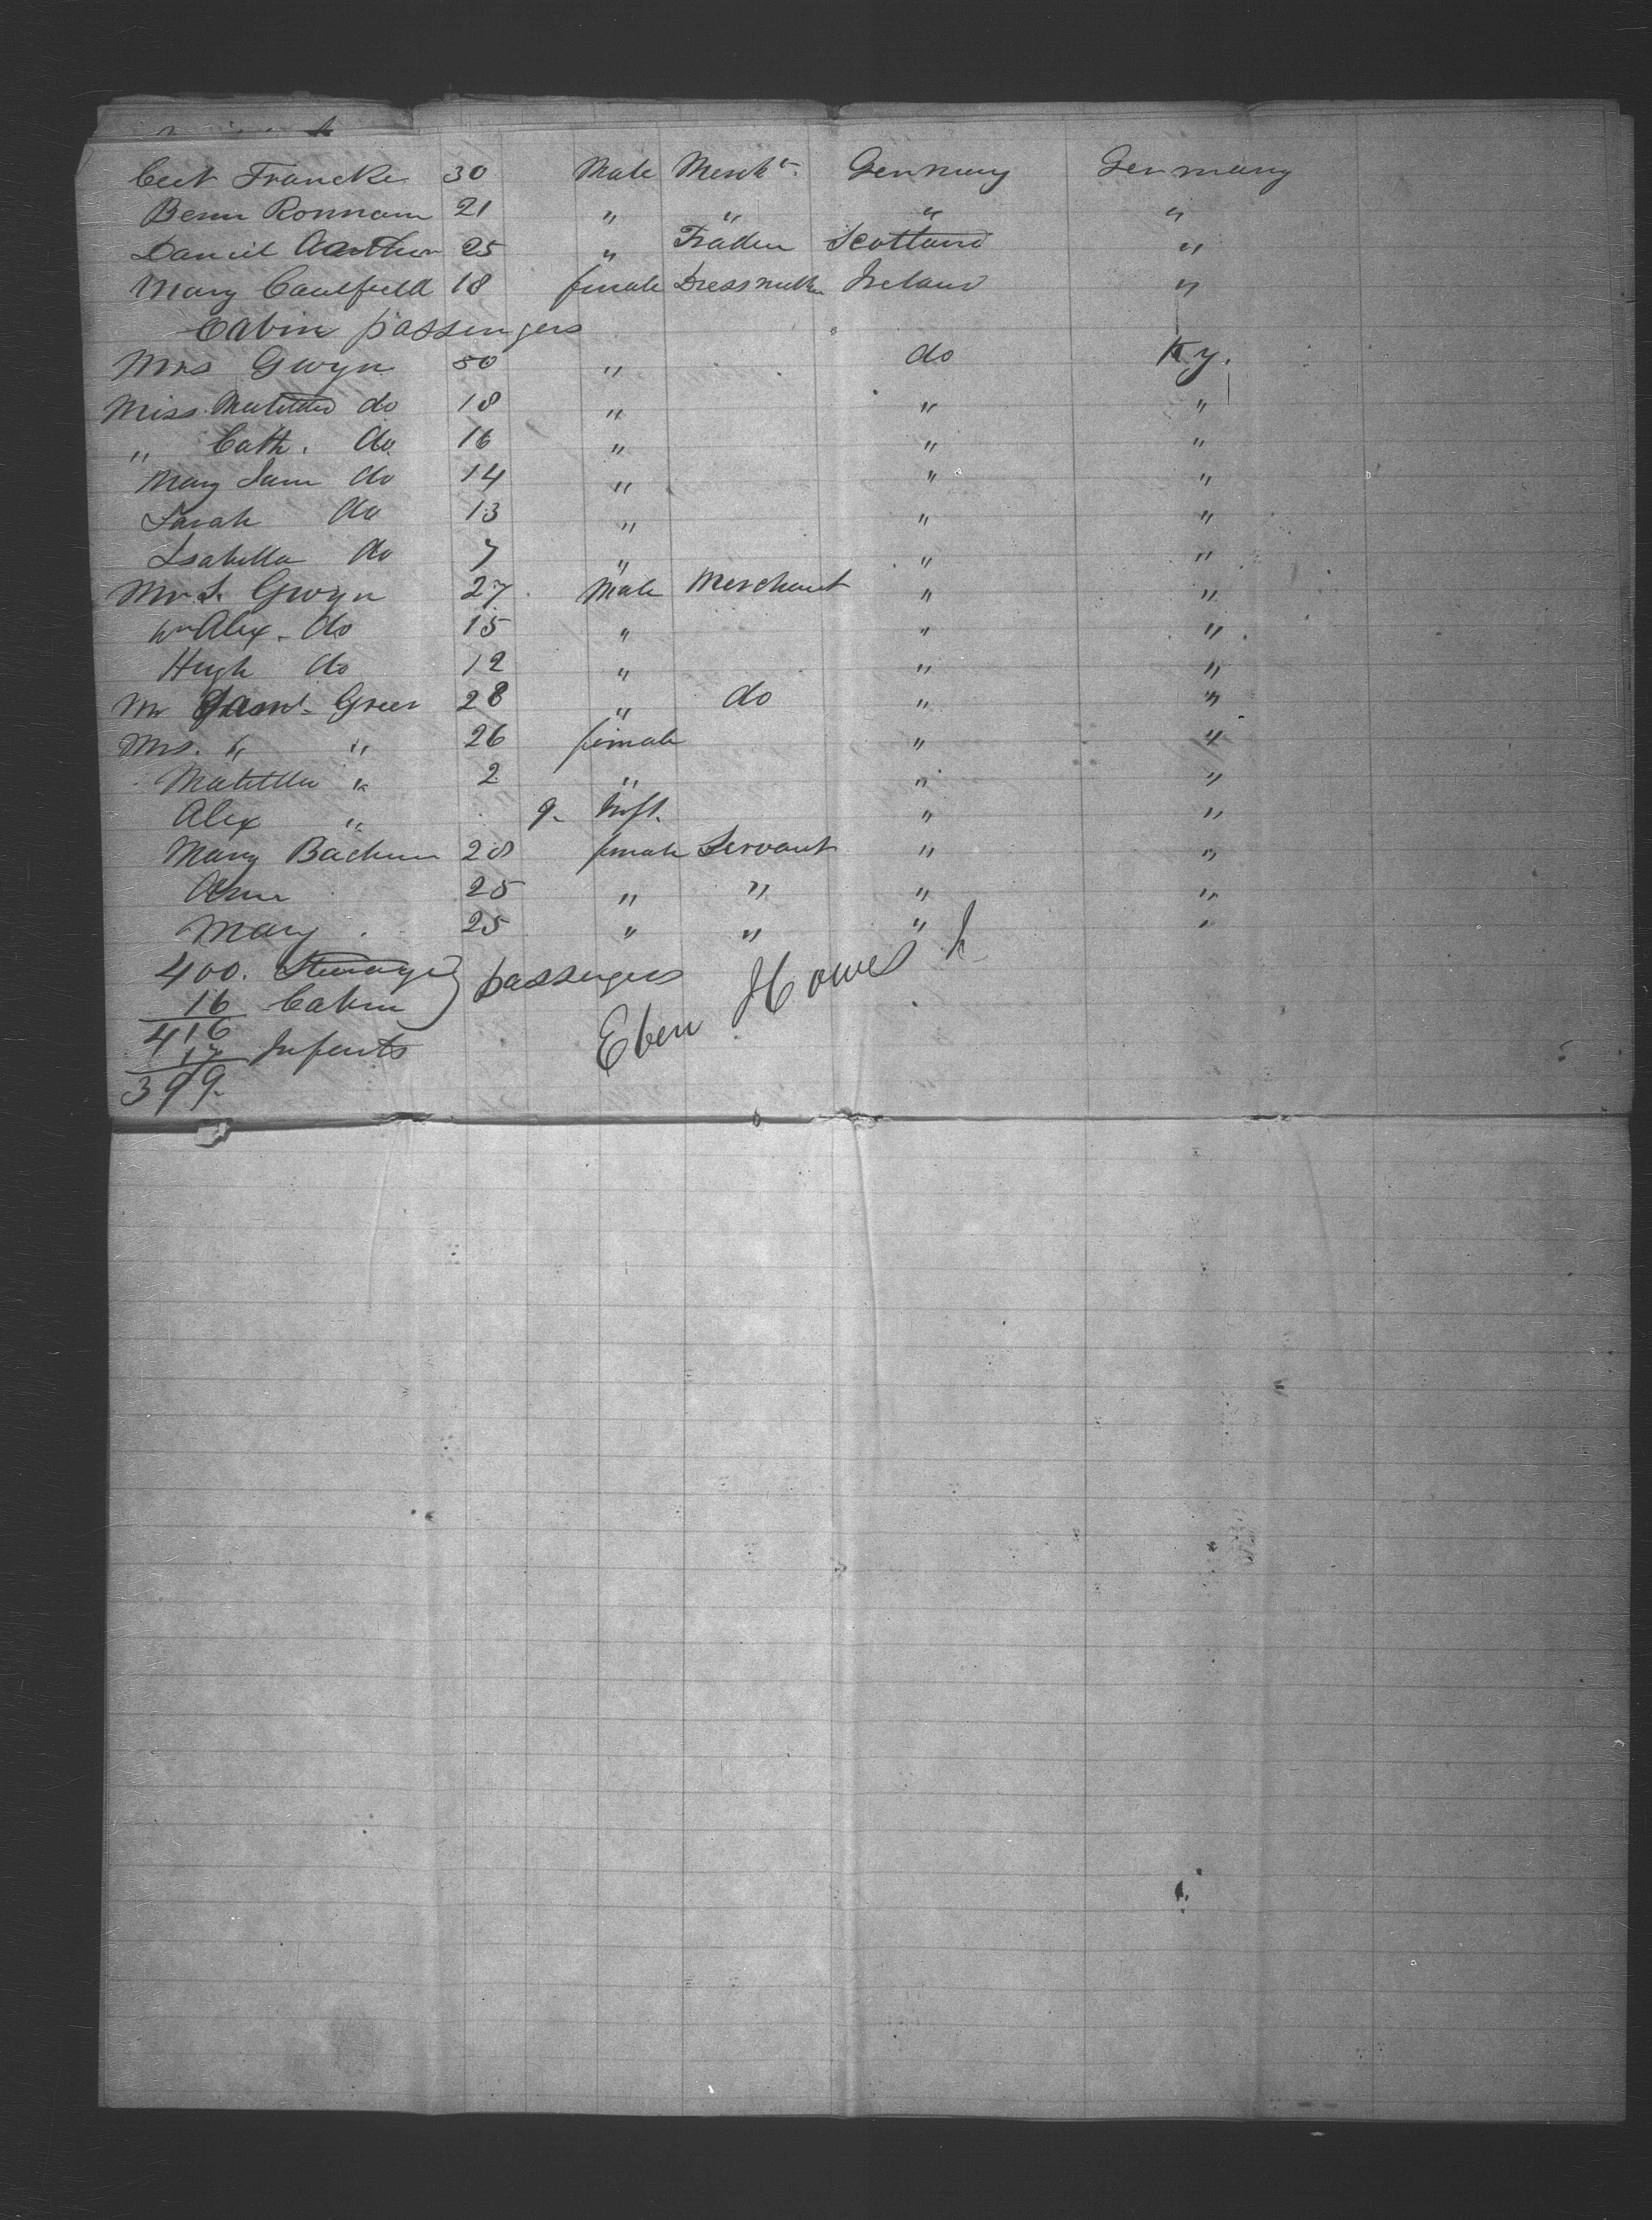 Francke 30 Male Mercht. Germany Germany
Benn Ronnam 21 " " " "
Daniel Aarthur 25 " Trader Scotland "
Mary Caulfield 18 female Dressmaker Ireland "
Cabin passengers
Mrs Gwyn 50 " do Ky.
Miss Matilda do 18 " " "
" Cath. do 16 " " "
Mary Jane do 14 " " "
Sarah do 13 " " "
Isabella do 7 " " "
Mr S. Gwyn 27 Male Merchant " "
Wm Alex. do 15 " " "
Hugh do 12 " " "
Mr Saml. Greer 28 " do " "
Mrs. " " 26 female " "
Matilda " 2 " " "
Alex " 9 Inft. " "
Mary 28 female Servant " "
Ann 25 " " " "
Mary 25 " " " "
400. Steerage } passengers
16 Cabin
416
17 Infants
399.
Eben Howes Jr